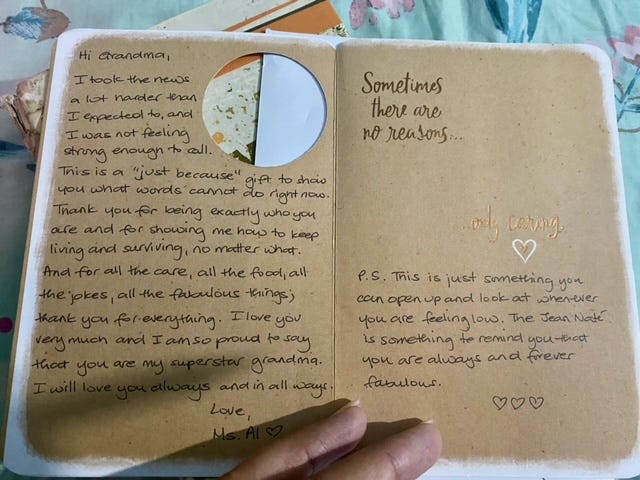 Hi Grandma,
I took the news
a lot harder than
I expected to, and
I was not feeling
strong enough to call.
This is a "just because" gift to show
you what words cannot do right now.
Thank you for being exactly who you
are and for showing me how to keep
living and surviving, no matter what.
And for all the care, all the food, all
the jokes, all the fabulous things;
thank you for everything. I love you
very much and I am so proud to say
that you are my superstar grandma.
I will love you always and in all ways.
Love,
Ms. Al ♡
Sometimes
there are
no reasons...
...only caring.
P.S. This is just something you
can open up and look at whenever
you are feeling low. The Jean Naté
is something to remind you that
you are always and forever
fabulous.
♡♡♡